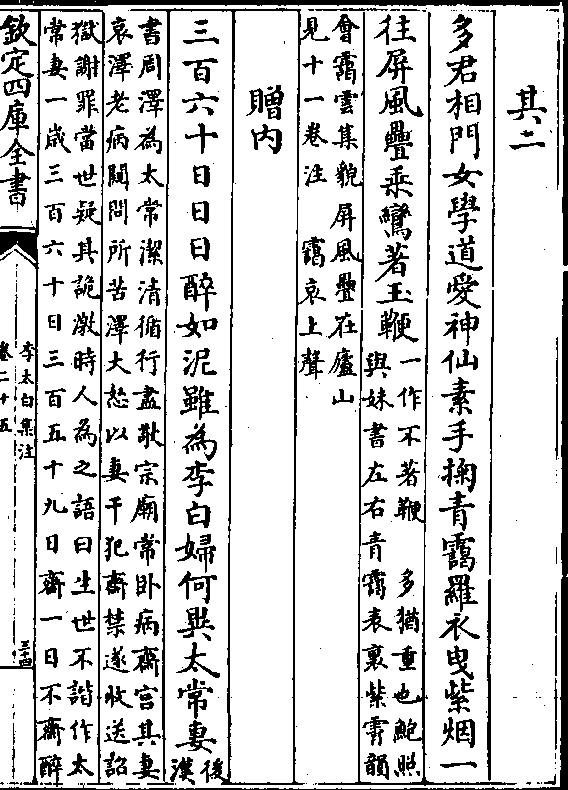 其二
多君相門女學道愛神仙素手掬青靄羅衣曳紫烟一
往屏風疊乘鸞著玉鞭
一作不著鞭　多猶重也鮑照
與妹書左右青靄表裏紫霄韻
會靄雲集貌屏風疊在廬山
見十一卷注　靄哀上聲
贈内
三百六十日日日醉如泥雖為李白婦何異太常妻
後
漢
書周澤為太常潔清循行盡敬宗廟常卧病齋宫其妻
哀澤老病闚問所苦澤大怒以妻干犯齋禁遂收送詔
獄謝罪當世疑其詭激時人為之語曰生世不諧作太
常妻一歲三百六十日三百五十九日齋一日不齋醉
欽定四庫全書
李太白集注
卷二十五
三十四